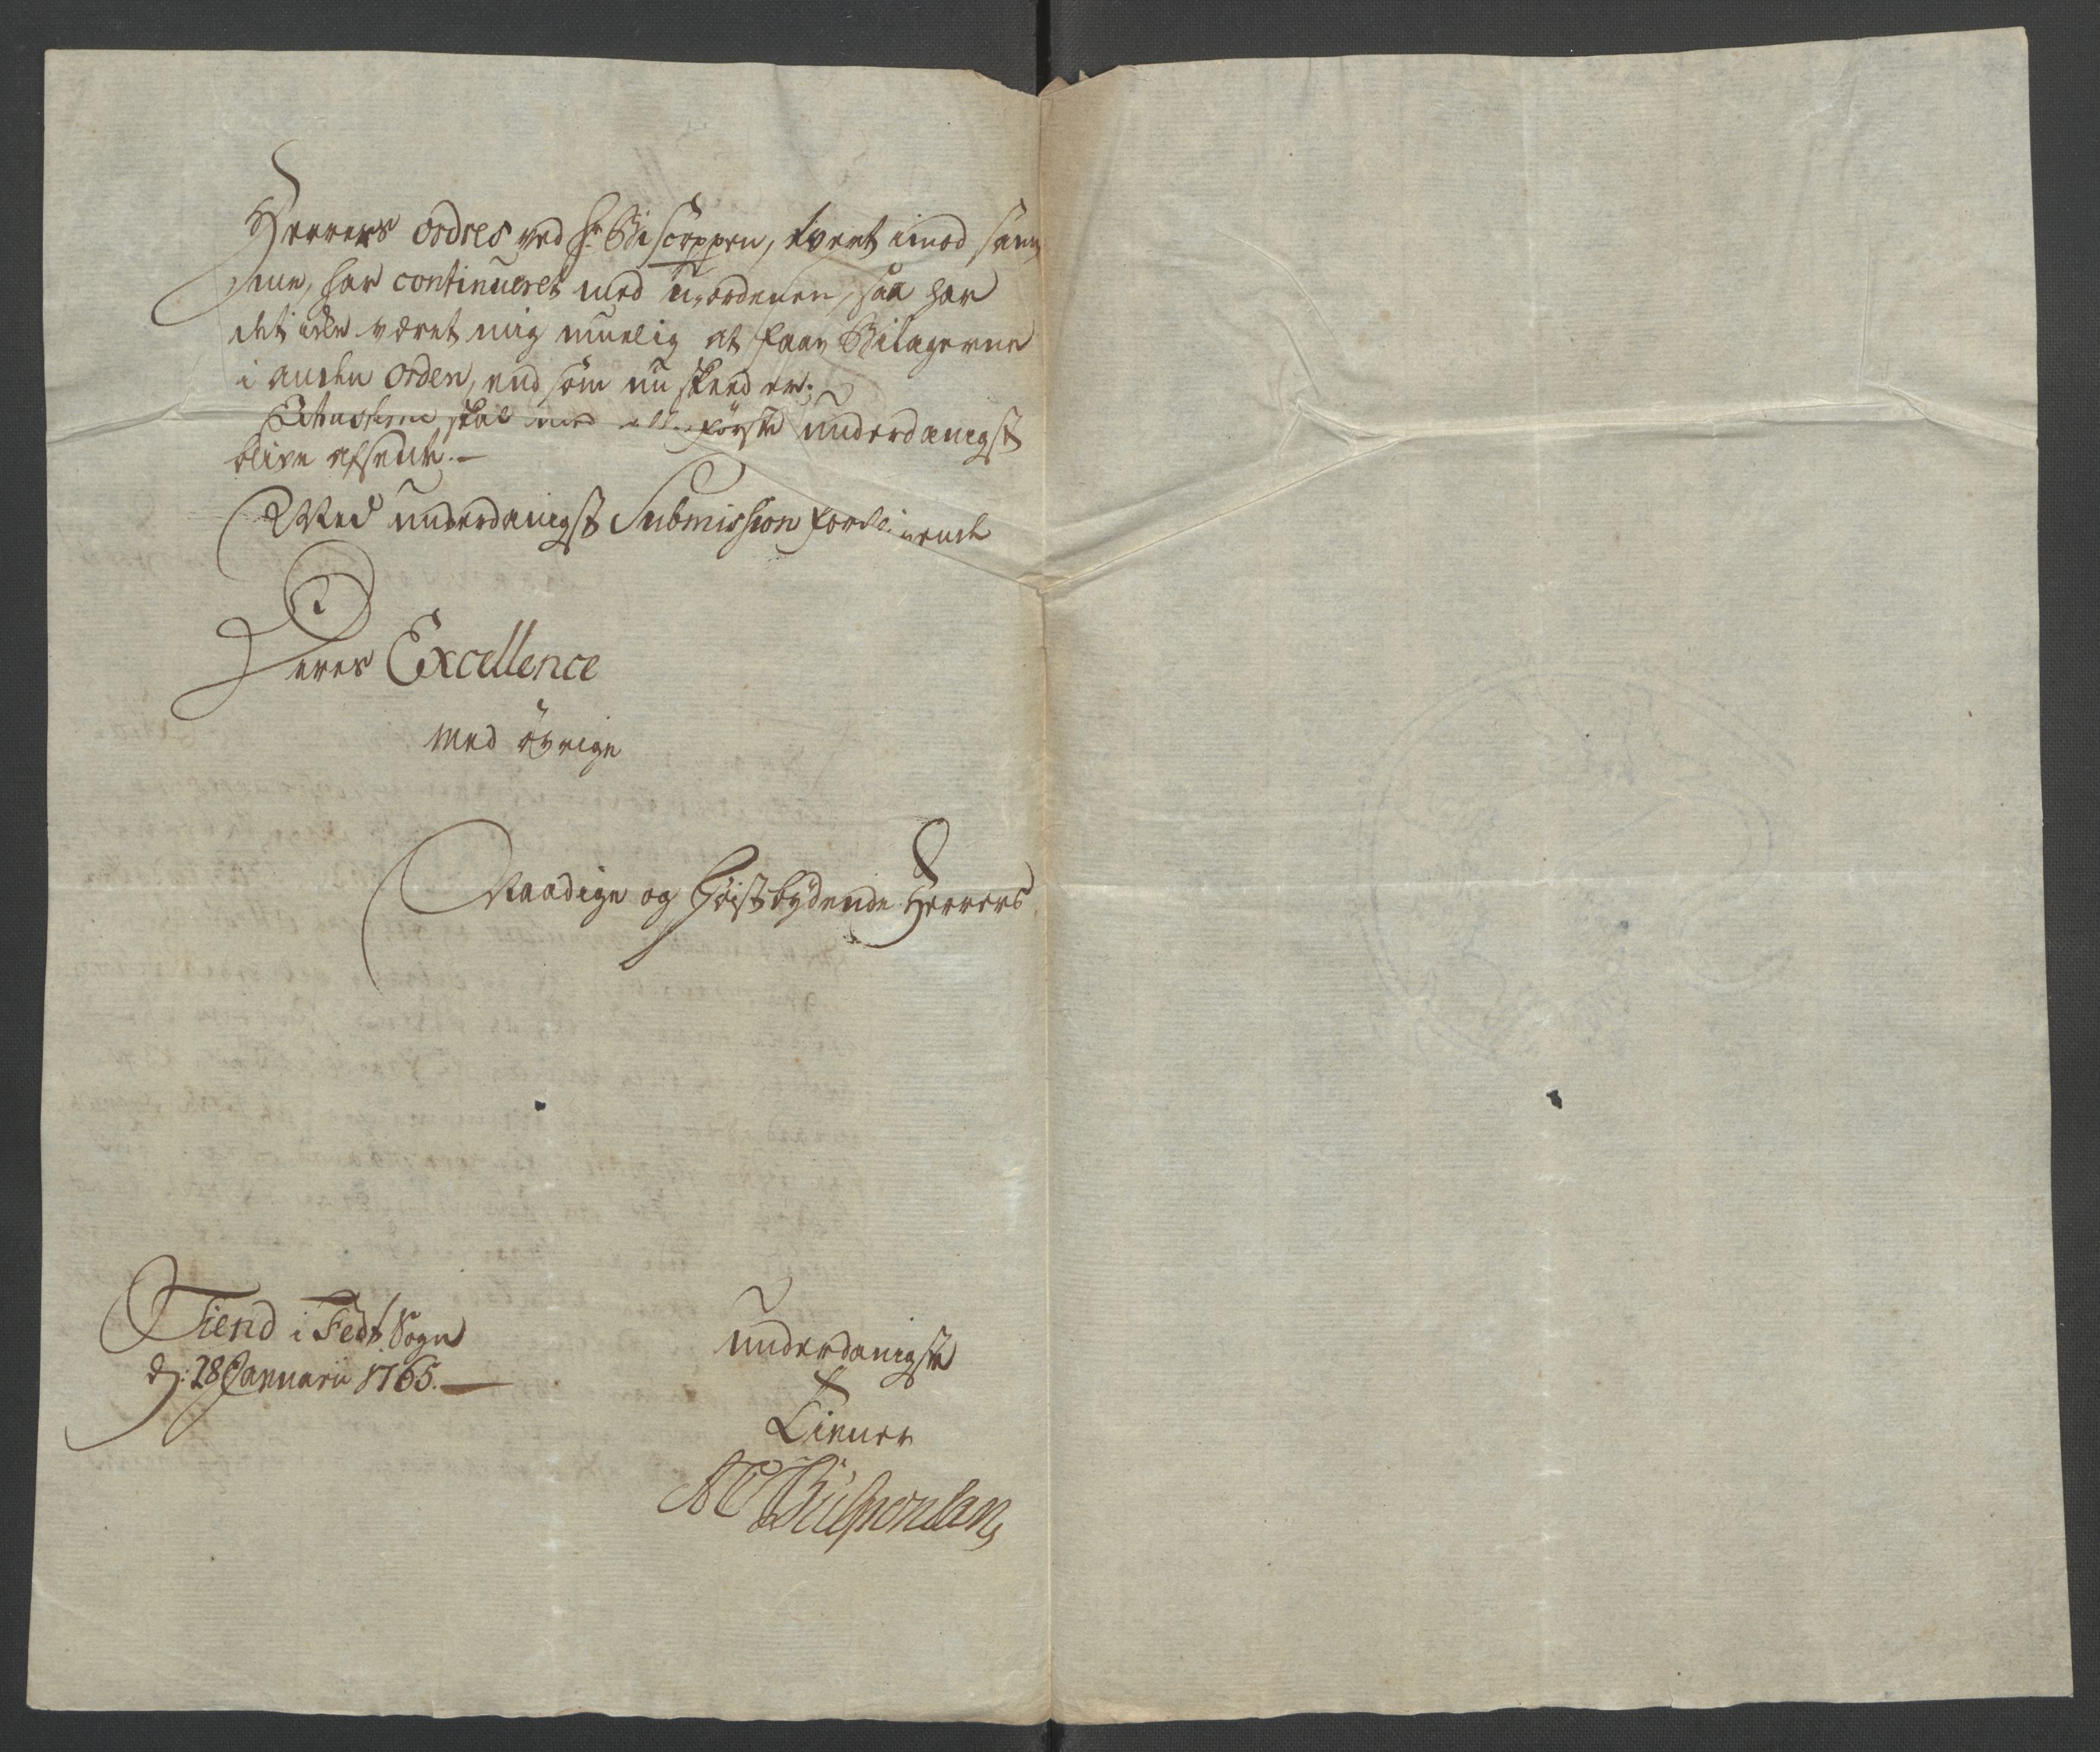 Herrers ordres ved Hr Biscoppen, tvert imod sam
me, har continueret med u-ordenen, saa har
det ikke været mig muelig at faae Bilagerne
i anden Orden, end som nu skeed er;
skal med første underdanigst
blive afsendt.—
Med underdanigst Submission forblivende
Deres Excellence
med övrige
Naadige og Höistbydende Herrers
Tiend i Fedt Sogn
d: 28 Januarii 1765.—
underdanigste
Tiener